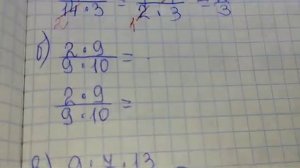 14 · 3 = 2 · 3 = 3
2 1
б) 2 · 9 / 9 · 10 =
2 · 9 / 9 · 10 =
9 · 7 · 13